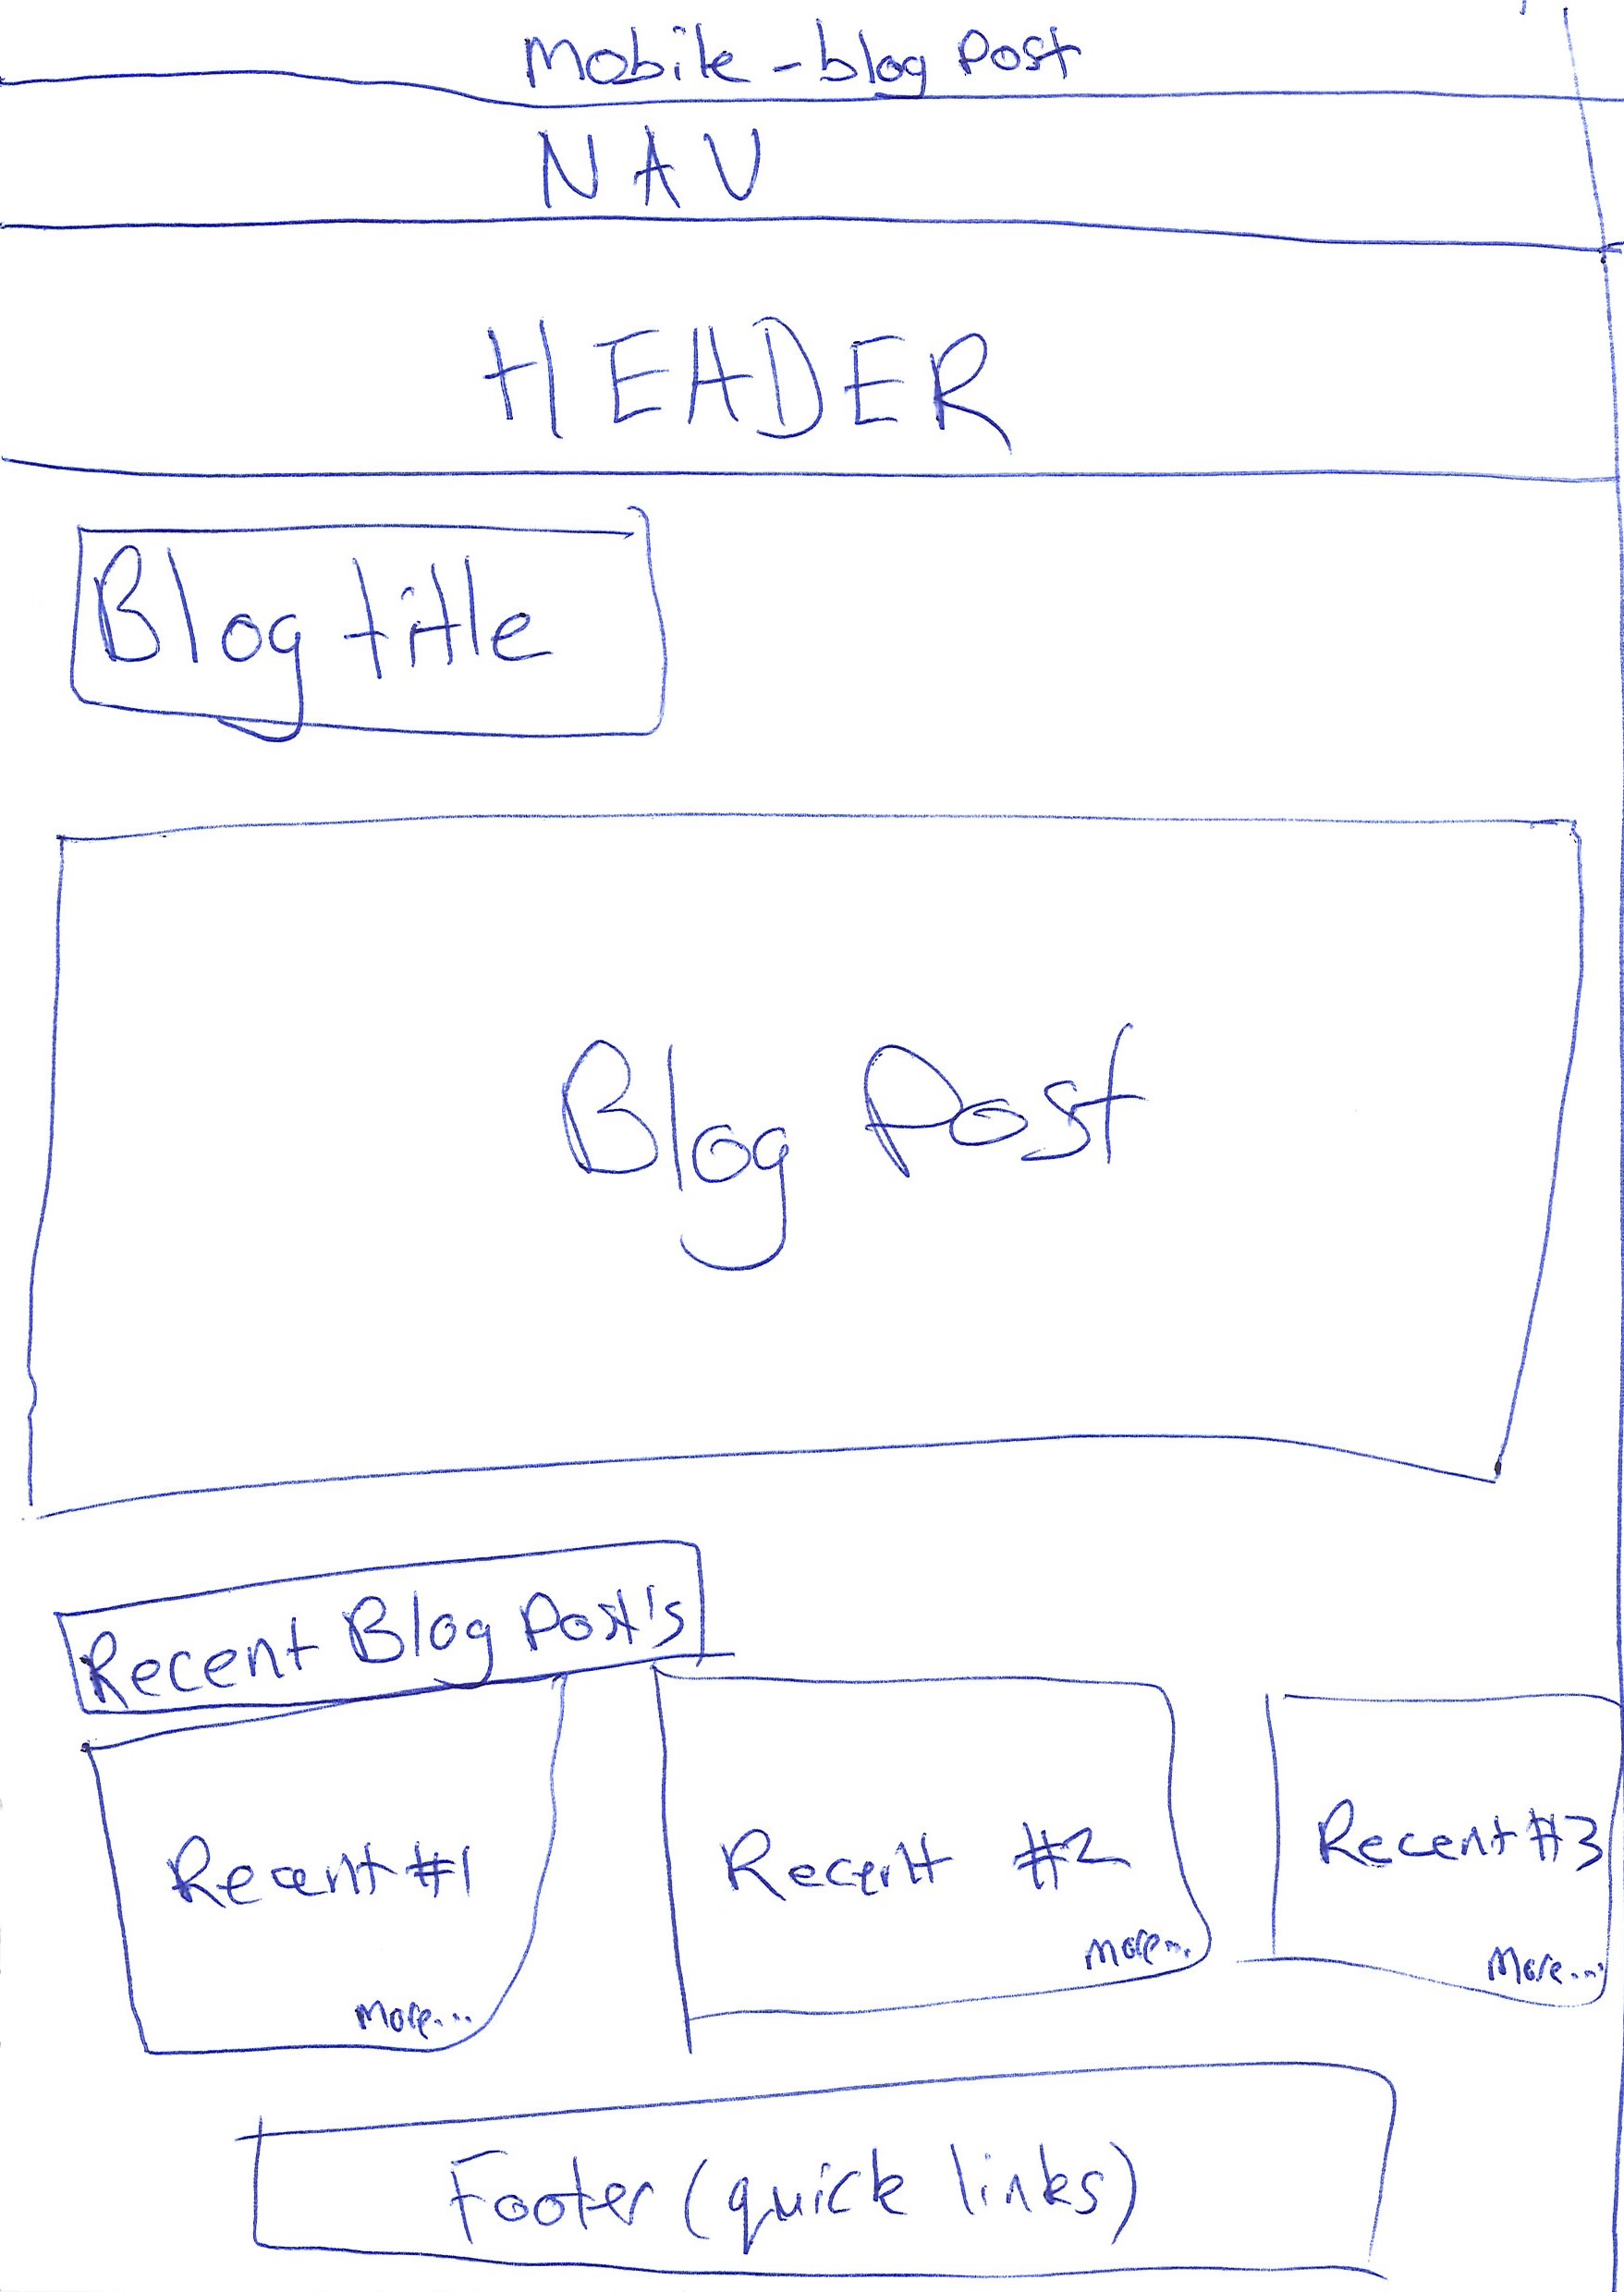 Mobile - blog Post
NAV
HEADER
Blog title
Blog Post
Recent Blog Post's
Recent #1
More...
Recent #2
More...
Recent #3
More...
Footer (quick links)